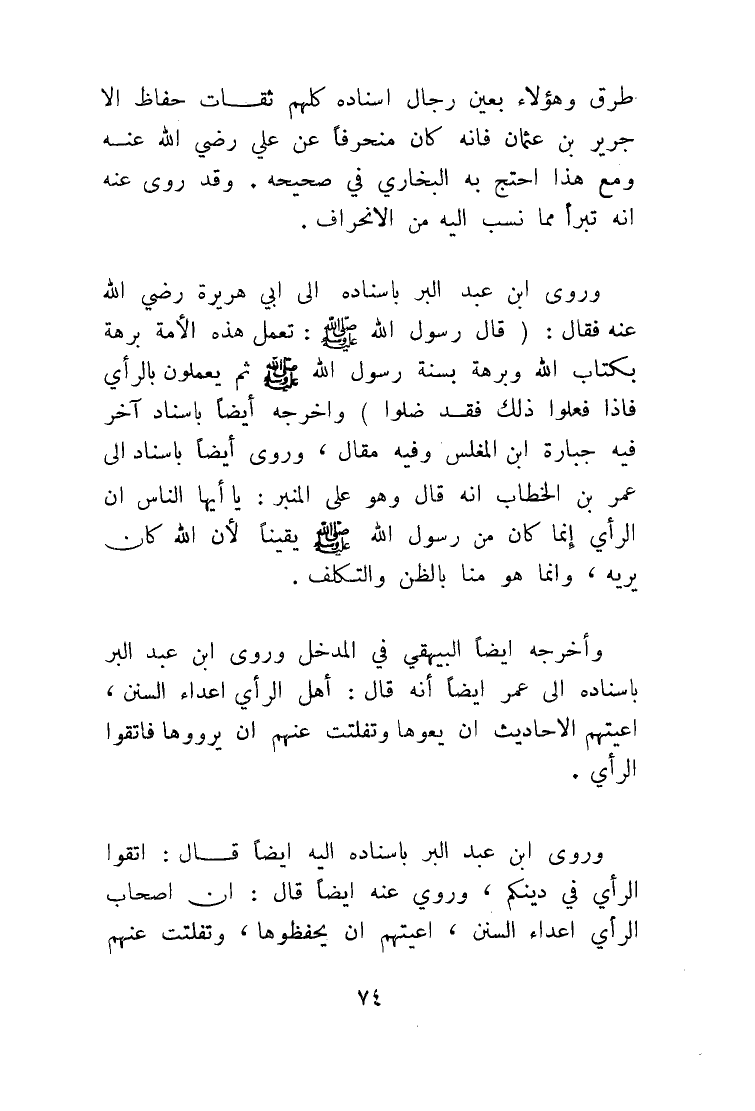 طرق وهؤلاء بعين رجال اسناده كلهم ثقات حفاظ الا
جرير بن عثمان فانه كان منحرفاً عن علي رضي الله عنه
ومع هذا احتج به البخاري في صحيحه . وقد روى عنه
انه تبرأ مما نسب اليه من الانحراف .
وروى ابن عبد البر باسناده الى ابي هريرة رضي الله
عنه فقال : ( قال رسول الله ﷺ : تعمل هذه الأمة برهة
بكتاب الله وبرهة بسنة رسول الله ﷺ ثم يعملون بالرأي
فاذا فعلوا ذلك فقد ضلوا ) واخرجه أيضاً باسناد آخر
فيه جبارة ابن المغلس وفيه مقال ، وروى أيضاً باسناد الى
عمر بن الخطاب انه قال وهو على المنبر : يا أيها الناس ان
الرأي إنما كان من رسول الله ﷺ يقيناً لأن الله كان
يريه ، وانما هو منا بالظن والتكلف .
وأخرجه ايضاً البيهقي في المدخل وروى ابن عبد البر
باسناده الى عمر ايضاً أنه قال : أهل الرأي اعداء السنن ،
اعيتهم الاحاديث ان يعوها وتفلتت عنهم ان يرووها فاتقوا
الرأي .
وروى ابن عبد البر باسناده اليه ايضاً قال : اتقوا
الرأي في دينكم ، وروي عنه ايضاً قال : ان اصحاب
الرأي اعداء السنن ، اعيتهم ان يحفظوها ، وتفلتت عنهم
٧٤